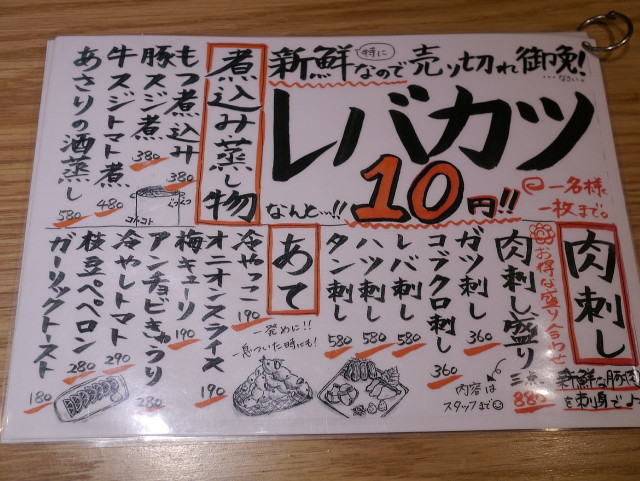 特に
新鮮なので売り切れ御免!
…なさい…
レバカツ
なんと…!!
10円!!
一名様に
一枚まで。
煮込み・蒸し物
もつ煮込み
380
豚スジ煮
380
牛スジトマト煮
480
あさりの酒蒸し
580
コトコト
肉刺し
新鮮な豚肉
を刺身で♪
お得な盛り合わせ
肉刺し盛り
三点
880
内容は
スタッフまで
ガツ刺し
360
コブクロ刺し
360
レバ刺し
580
ハツ刺し
580
タン刺し
580
あて
一発めに!!
一息ついた時にも!
冷やっこ
190
オニオンスライス
190
梅キューリ
190
アンチョビきゅうり
280
冷やしトマト
290
枝豆ペペロン
280
ガーリックトースト
180